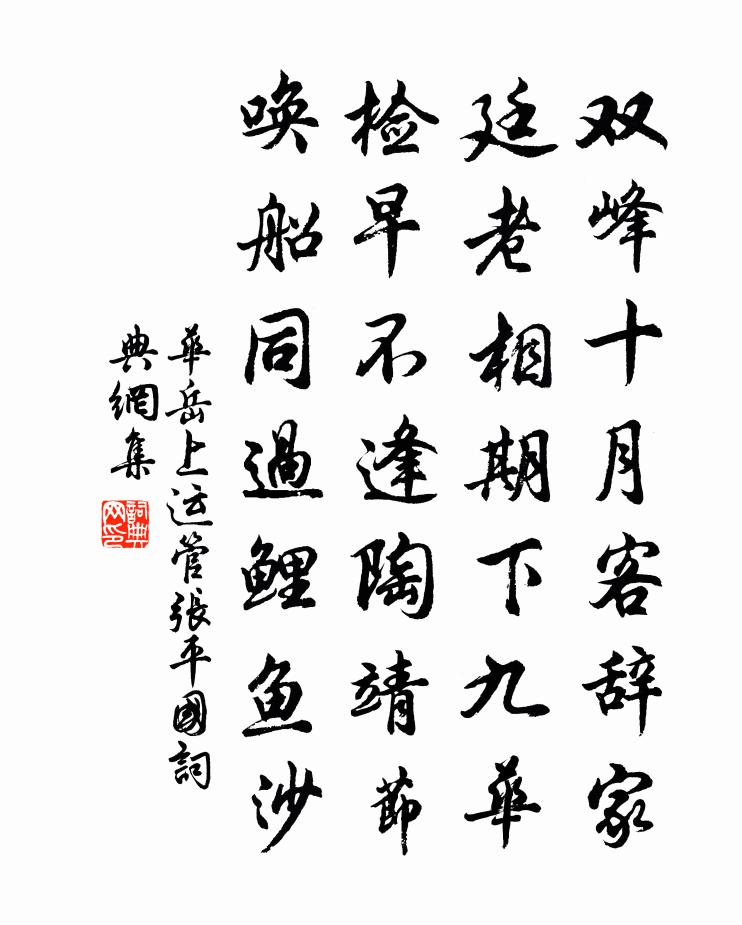 双峰十月客辞家
廷老相期下九华
检早不逢陶靖节
唤船同过鲤鱼沙
华岳上运管张平國詞
典網集
詞典網印